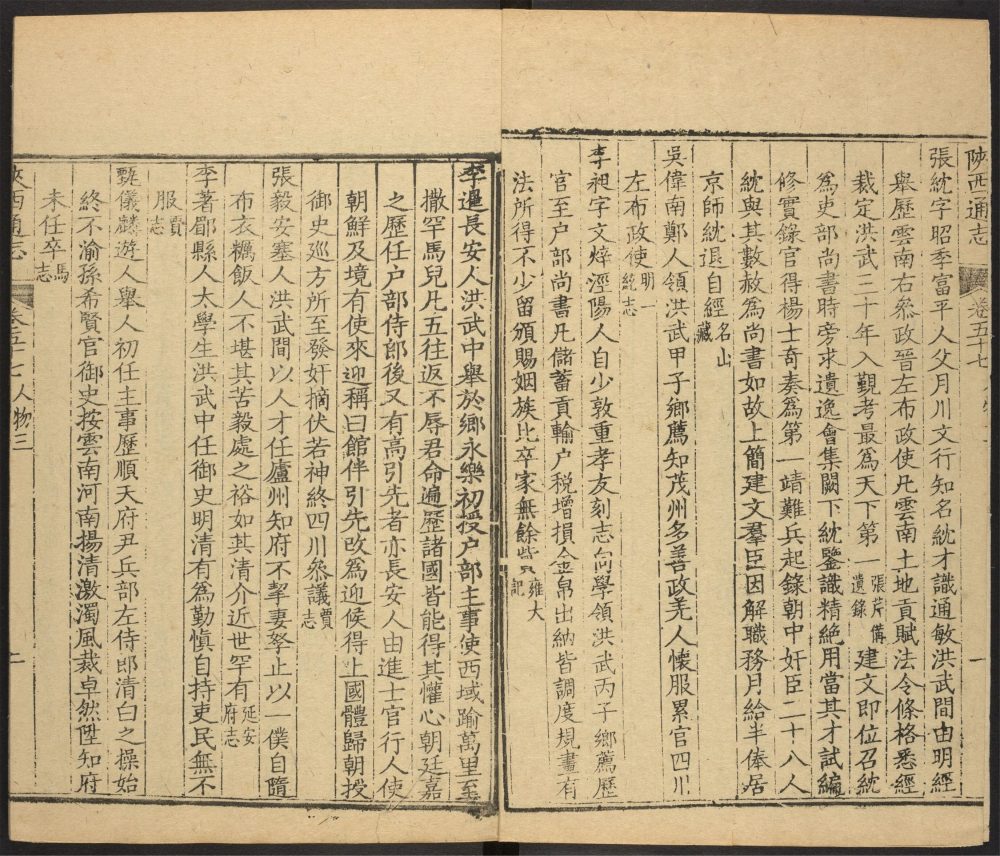 陝西通志 卷五十七 一
張紞字昭季富平人父月川文行知名紞才識通敏洪武間由明經
舉歷雲南右叅政晉左布政使凡雲南土地貢賦法令條格悉經
裁定洪武二十年入覲考最爲天下第一張芹備遺錄建文即位召紞
爲吏部尚書時旁求遺逸會集闕下紞鑒識精絶用當其才試編
修實錄官得楊士奇奏爲第一靖難兵起錄朝中奸臣二十八人
紞與其數赦爲尚書如故上簡建文羣臣因解職務月給半俸居
京師紞退自經名山藏
吳偉南鄭人領洪武甲子鄉薦知茂州多善政羌人懷服累官四川
左布政使明一統志
李昶字文焠涇陽人自少敦重孝友刻志向學領洪武丙子鄉薦歷
官至户部尚書凡儲蓄貢輸户税增損金帛出納皆調度規畫有
法所得不少留頒賜姻族比卒家無餘貲雍大記
李暹長安人洪武中舉於鄉永樂初授户部主事使西域踰萬里至
撒罕馬兒凡五往返不辱君命遍歷諸國皆能得其懽心朝廷嘉
之歷任户部侍郎後又有高引先者亦長安人由進士官行人使
朝鮮及境有使來迎稱曰館伴引先改爲迎候得上國體歸朝授
御史巡方所至發奸摘伏若神終四川叅議賈志
張毅安塞人洪武間以人才任廬州知府不挈妻孥止以一僕自隨
布衣糲飯人不堪其苦毅處之裕如其清介近世罕有延安府志
李著郿縣人太學生洪武中任御史明清有爲勤慎自持吏民無不
服賈志
甄儀麟遊人舉人初任主事歷順天府尹兵部左侍郎清白之操始
終不渝孫希賢官御史按雲南河南揚清激濁風裁卓然陞知府
未任卒馬志
陝西通志 卷五十七人物三 二